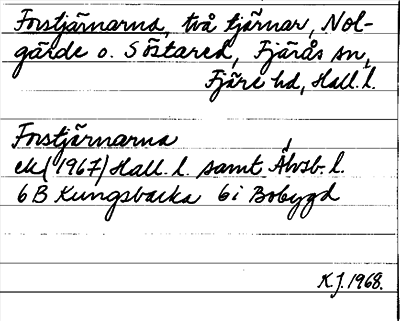 Forstjärnarna, två tjärnar, Nol-
gärde o. Söstared, Fjärås sn,
Fjäre hd, Hall. l.
Forstjärnarna
ek (1967) Hall. l. samt Älvsb. l.
6B Kungsbacka 6i Bobygd
KJ. 1968.